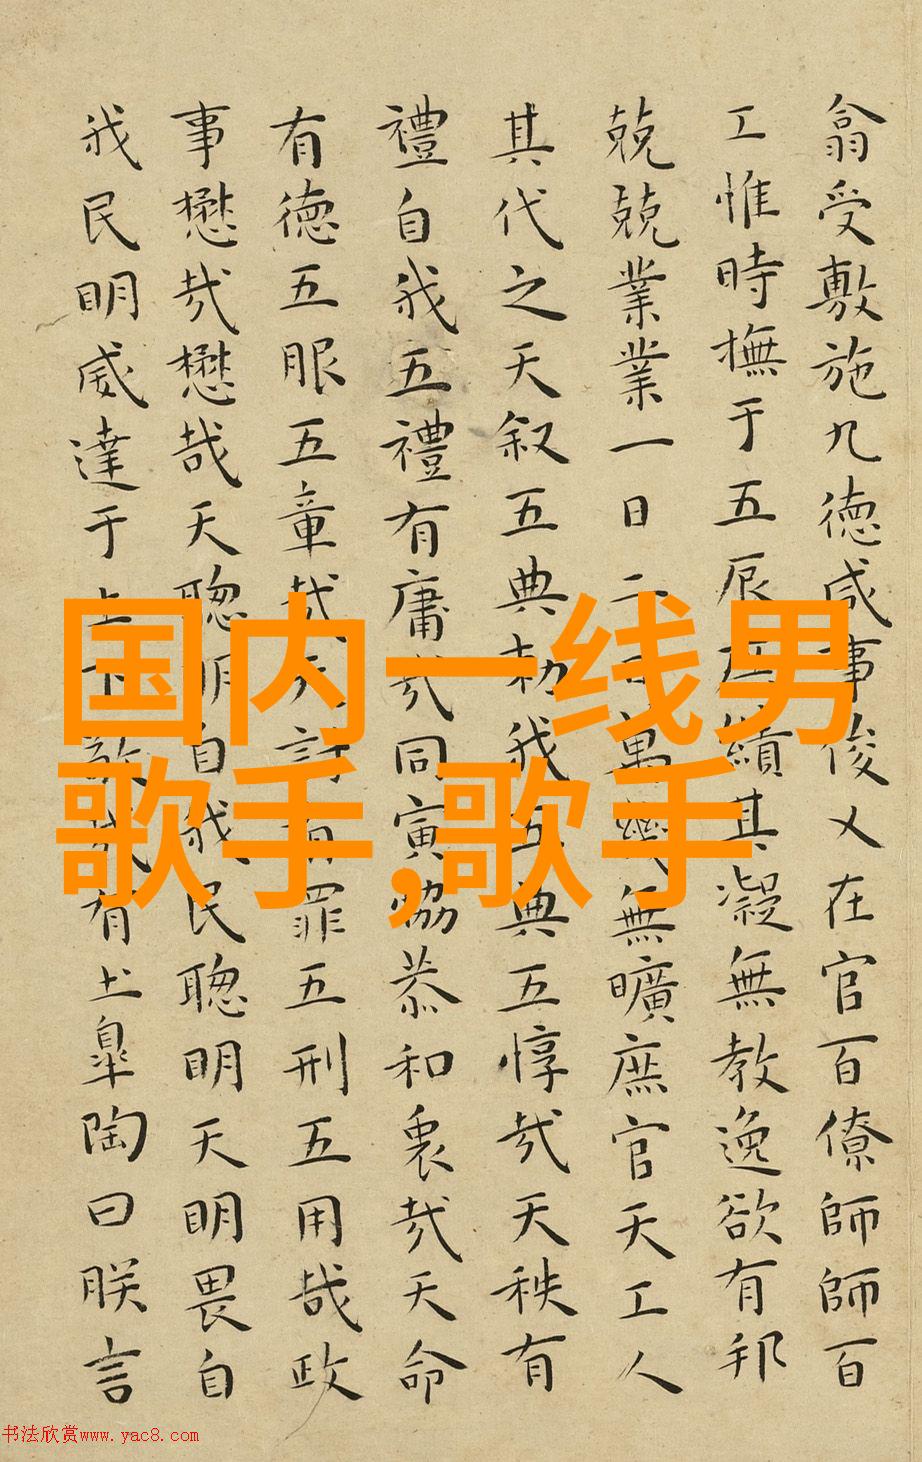 翕受敷施九德咸事俊乂在官百僚師師百
工惟時撫于五辰庶績其凝無教逸欲有邦
兢兢業業一日二日萬幾無曠庶官天工人
其代之天叙五典勑我五典五惇哉天秩有
禮自我五禮有庸哉同寅恊恭和衷哉天命
有德五服五章哉天討有罪五刑五用哉政
事懋哉懋哉天聰明自我民聰明天明畏自
我民明威達于上下敬哉有土皐陶曰朕言
国内一线男
歌手,歌手
书法欣赏www.yac8.com